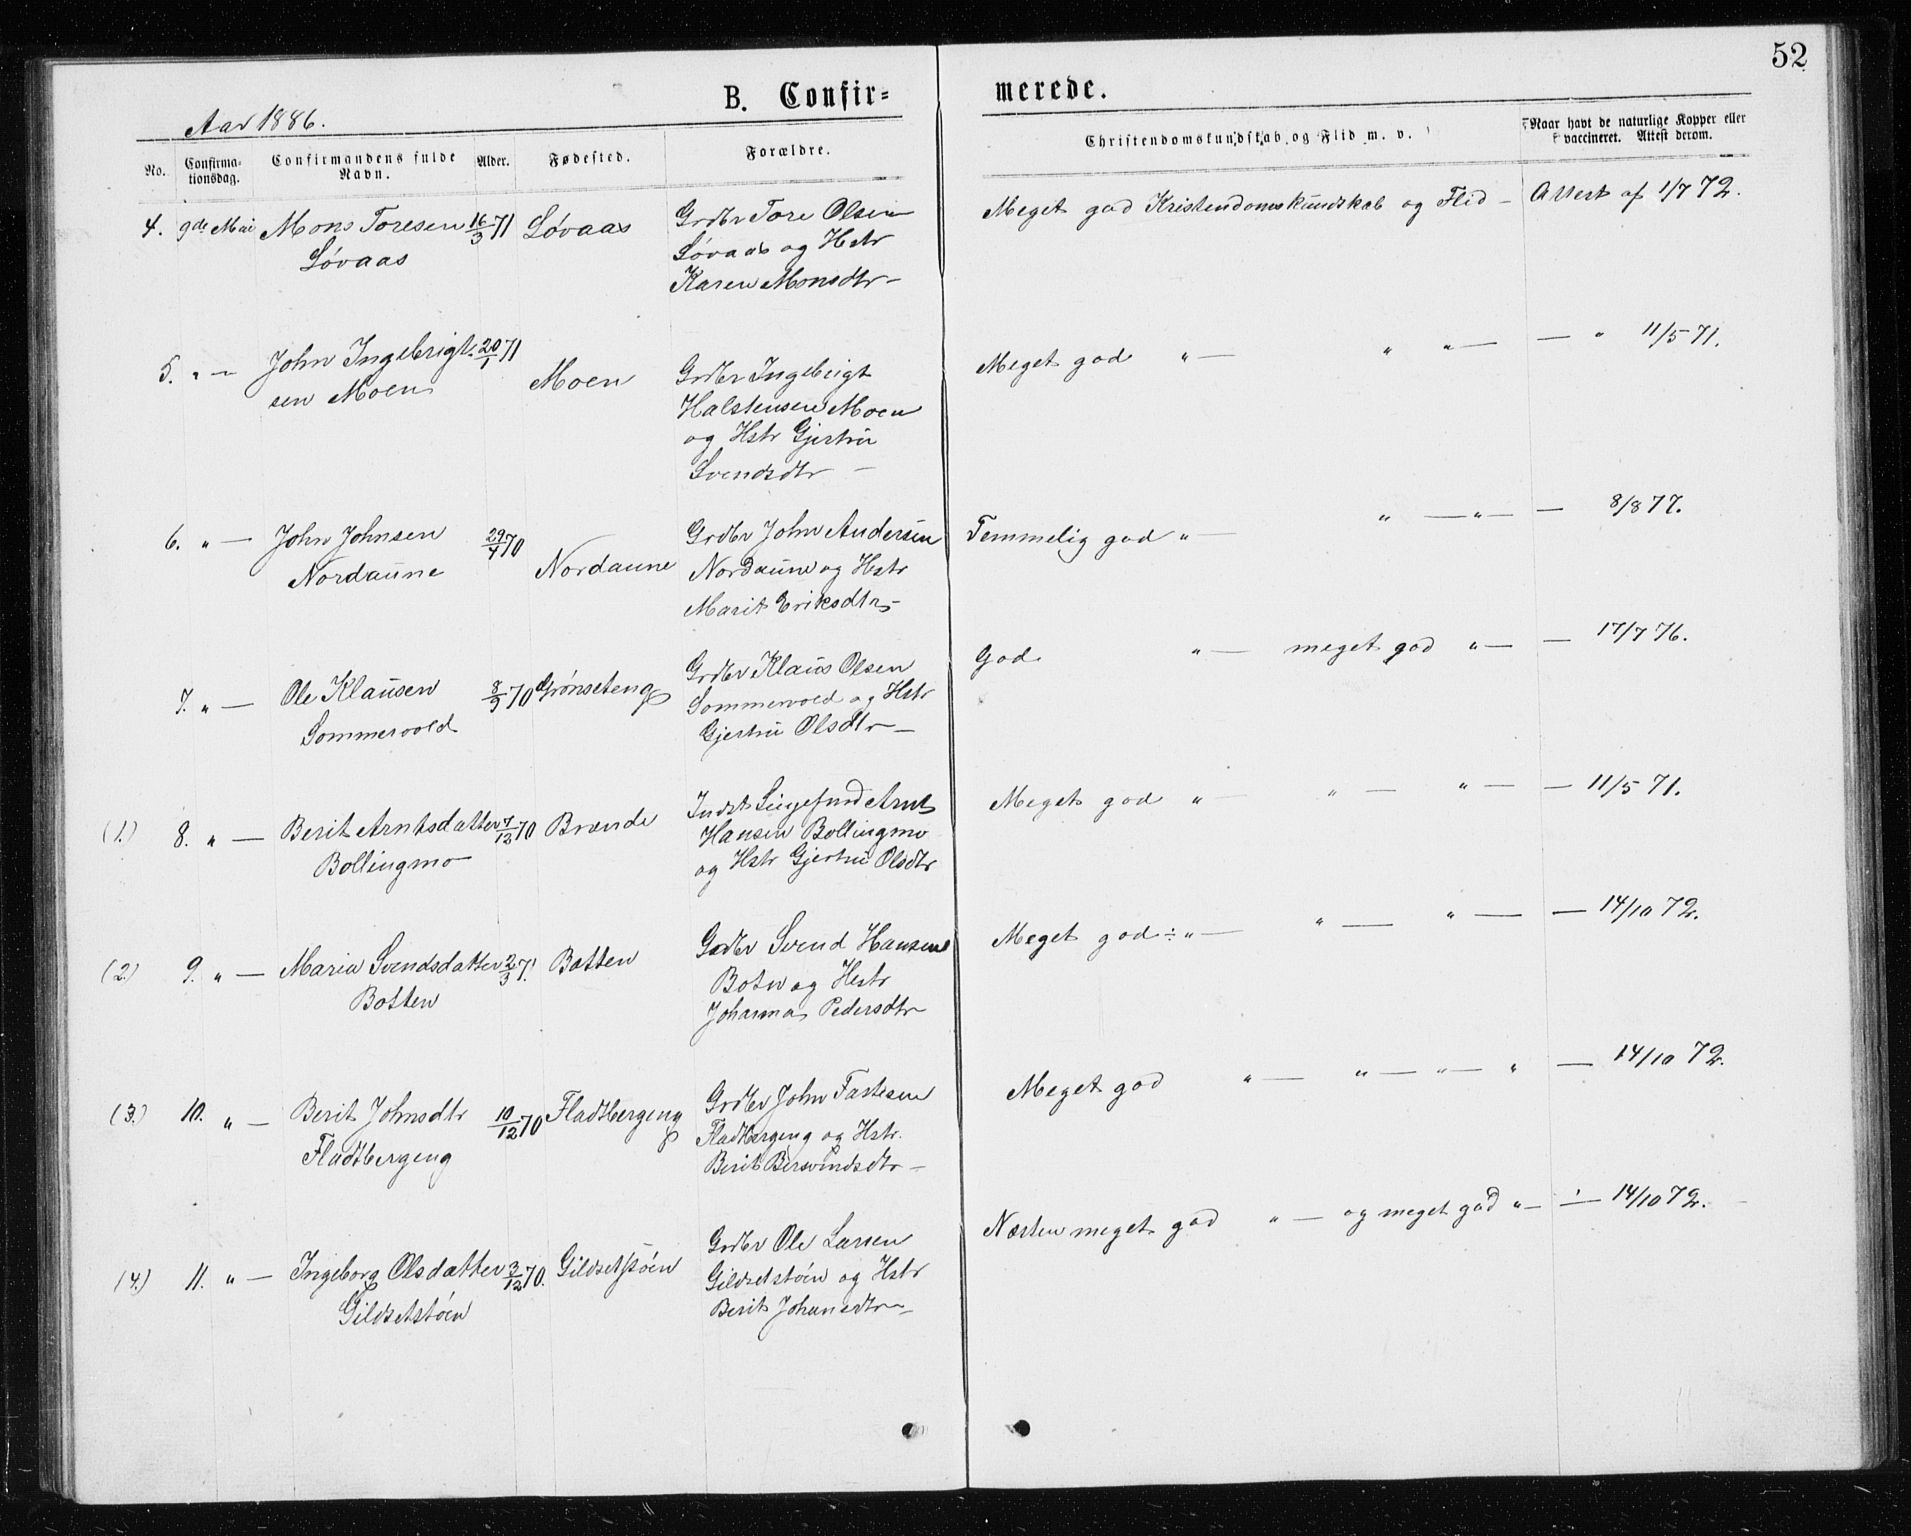 52
B. Confir=
merede.
Aar 1886.
No.
Confirma-
tionsdag.
Confirmandens fulde
Navn.
Alder.
Fødested.
Forældre.
Christendomskundskab og Flid m. v.
Naar havt de naturlige Kopper eller
vaccineret. Attest derom.
4. 9de Mai Mons Toresen 16/3 71 Løvaas Grdbr Tore Olsen Meget god Kristendomskundskab og Flid — Attest af 1/7 72.
Løvaas Løvaas og Hstr
Karen Monsdtr —
5. " — John Ingebrigt- 20/1 71 Moen Grdbr Ingebrigt Meget god " — " " — — " 11/5 71.
sen Moen Halstensen Moen
og Hstr Gjertru
Svendsdtr —
6. " — John Johnsen 29/4 70 Nordaune Grdbr John Andersen Temmelig god " — " — " — — 8/8 77.
Nordaune Nordaune og Hstr
Marit Eriksdtr —
7. " — Ole Klausen 8/9 70 Grønseteng Grdbr Klaus Olsen God " — meget god " — — 17/7 76.
Sommervold Sommervold og Hstr
Gjertru Olsdtr —
(1.) 8. " — Berit Arntsdatter 7/12 70 Brænde Indst Leiesfmd Arnt Meget god " — " — " — — 11/5 71.
Bollingmo Hansen Bollingmo
og Hstr Gjertru Olsdtr
(2.) 9. " — Maria Svendsdatter 2/3 71. Botten Grdbr Svend Hansen Meget god ÷ " — " — " — — 14/10 72.
Botten Botn og Hstr
Johanna Pedersdtr
(3.) 10. " — Berit Johnsdtr 10/12 70 Fladtbergeng Grdbr John Fastesen Meget god " — " — " — " — 14/10 72.
Fladtbergeng Fladtbergeng og Hstr.
Berit Bersvendsdtr —
(4.) 11. " — Ingeborg Olsdatter 3/12 70. Gildsetstøen Grdbr Ole Larsen Næsten meget god " — og meget god " — — 14/10 72.
Gildsetstøen Gildsetstøen og Hstr
Berit Johansdtr —